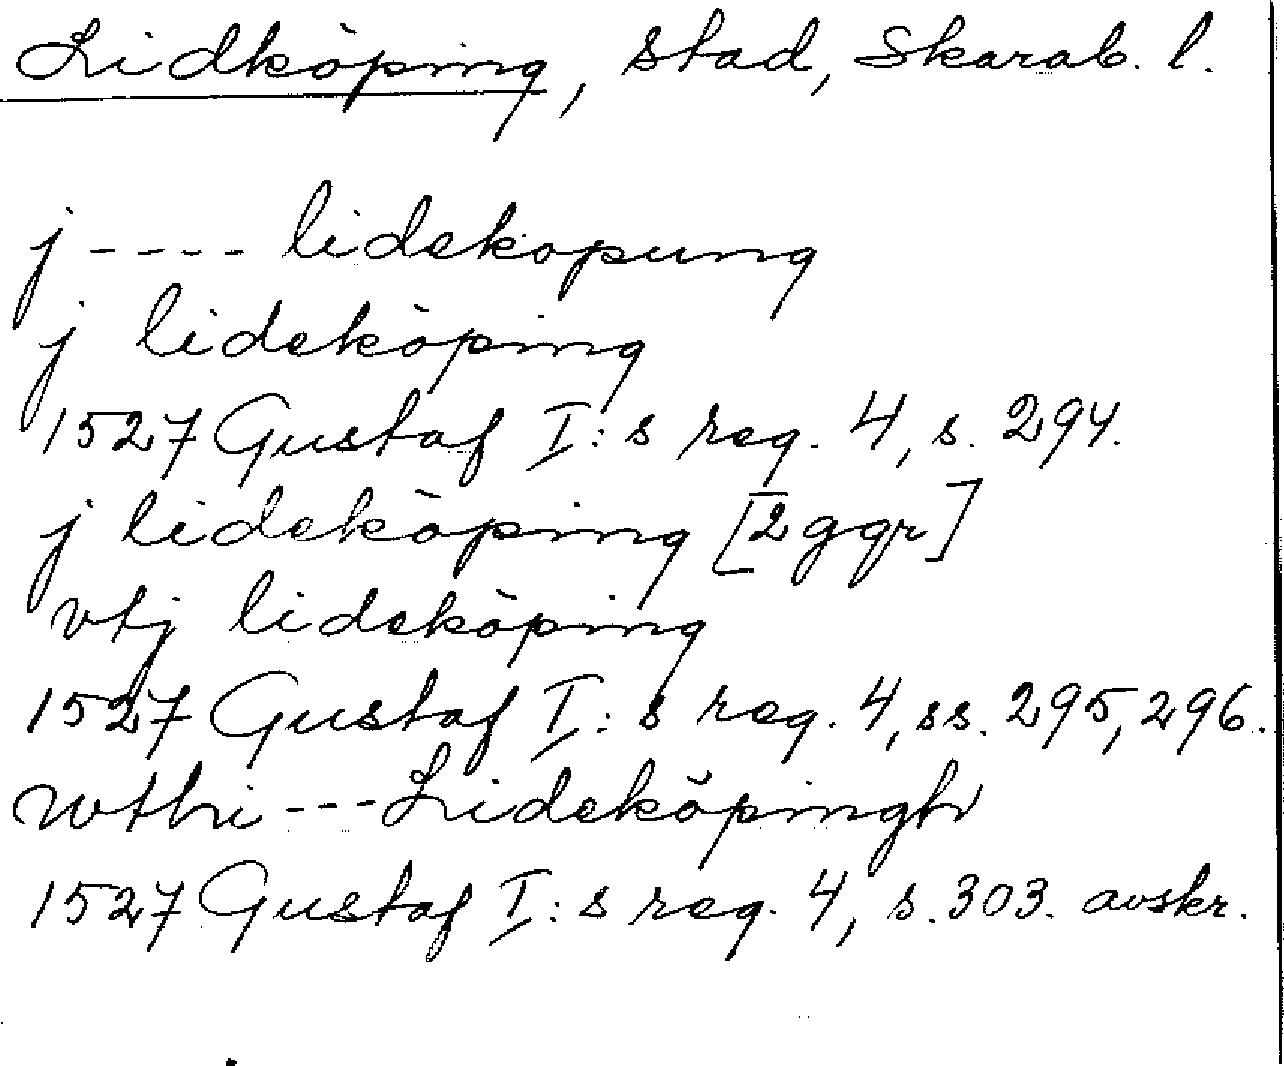 Lidköping, stad, Skarab. l.
j ---- lidekopung
j lideköping
1527 Gustaf I:s reg. 4, s. 294.
j lideköping [2 ggr]
vtj lideköping
1527 Gustaf I:s reg. 4, ss. 295, 296.
wthi --- Lideköpingh
1527 Gustaf I:s reg. 4, s. 303. avskr.